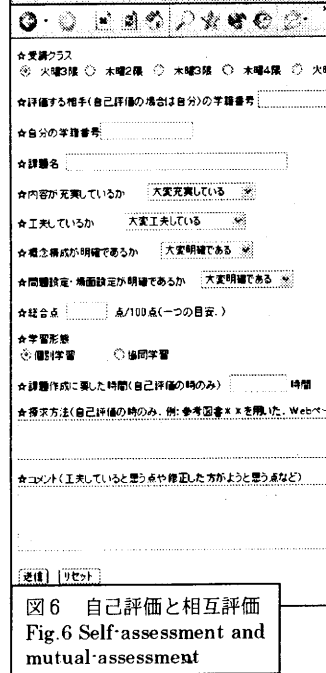 ☆受講クラス
火曜3限 木曜2限 木曜3限 木曜4限
☆評価する相手(自己評価の場合は自分)の学籍番号
☆自分の学籍番号
☆課題名
☆内容が充実しているか 大変充実している
☆工夫しているか 大変工夫している
☆概念構成が明確であるか 大変明確である
☆問題設定・場面設定が明確であるか 大変明確である
☆総合点 点/100点(一つの目安.)
☆学習形態
個別学習 協同学習
☆課題作成に要した時間(自己評価の時のみ) 時間
☆探求方法(自己評価の時のみ. 例:参考図書××を用いた, Webペー
☆コメント(工夫していると思う点や修正した方がようと思う点など)
送信 リセット
図6 自己評価と相互評価
Fig.6 Self-assessment and
mutual-assessment